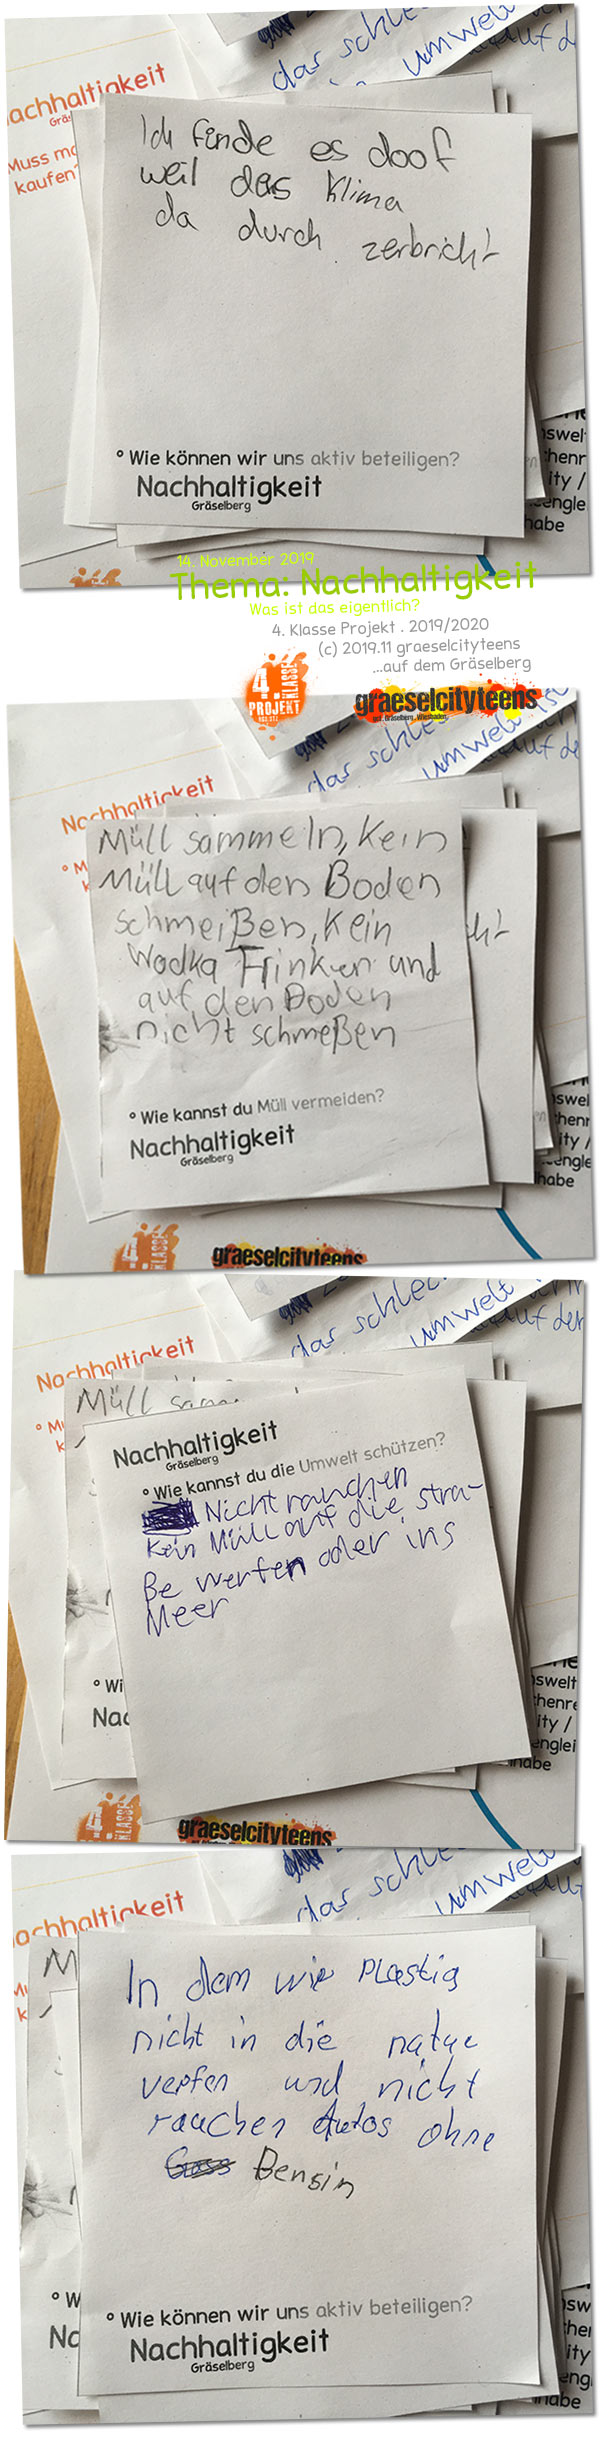 das schle
umwelt
auf de
Nachhaltigkeit
Muss ma
kaufen?
Ich finde es doof
weil das Klima
da durch zerbricht
° Wie können wir uns aktiv beteiligen?
Nachhaltigkeit
Gräselberg
swel
henr
ity /
engle
habe
14. November 2019
Thema: Nachhaltigkeit
Was ist das eigentlich?
4. Klasse Projekt . 2019/2020
(c) 2019.11 graeselcityteens
...auf dem Gräselberg
4. KLASSE
PROJEKT
graeselcityteens
das schle
umwelt
auf de
Nachhaltigkeit
Müll sammeln, kein
Müll auf den Boden
schmeißen, kein
Wodka Trinken und
auf den Boden
nicht schmeßen
ht
° Wie kannst du Müll vermeiden?
Nachhaltigkeit
Gräselberg
swel
henr
ity /
engle
habe
KLASSE
graeselcityteens
das schle
umwelt
auf der
Nachhaltigkeit
Müll samm
Nachhaltigkeit
Gräselberg
° Wie kannst du die Umwelt schützen?
Nicht rauchen
kein Müll auf die stra-
ße werfen oder ins
Meer
° Wi
Nac
swelt
henre
ity /
englei
habe
KLASSE
graeselcityteens
das schle
umwelt
auf de
achhaltigkeit
M
In dem wir Plastig
nicht in die natur
verfen und nicht
rauchen Autos ohne
Bensin
° W
Nc
° Wie können wir uns aktiv beteiligen?
Nachhaltigkeit
Gräselberg
sw
her
ity
eng
habe